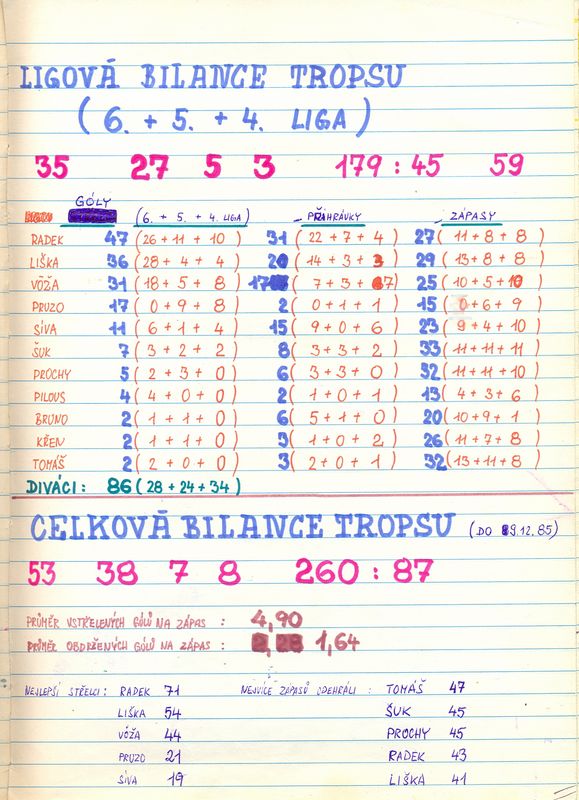 LIGOVÁ BILANCE TROPSU
(6. + 5. + 4. LIGA)
35 27 5 3 179 : 45 59
GÓLY (6. + 5. + 4. LIGA) PŘIHRÁVKY ZÁPASY
RADEK 47 (26 + 11 + 10) 31 (22 + 7 + 4) 27 (11 + 8 + 8)
LIŠKA 36 (28 + 4 + 4) 20 (14 + 3 + 3) 29 (13 + 8 + 8)
VÓŽA 31 (18 + 5 + 8) 17 (7 + 3 + 7) 25 (10 + 5 + 10)
PRUZO 17 (0 + 9 + 8) 2 (0 + 1 + 1) 15 (0 + 6 + 9)
SÍVA 11 (6 + 1 + 4) 15 (9 + 0 + 6) 23 (9 + 4 + 10)
ŠUK 7 (3 + 2 + 2) 8 (3 + 3 + 2) 33 (11 + 11 + 11)
PROCHY 5 (2 + 3 + 0) 6 (3 + 3 + 0) 32 (11 + 11 + 10)
PILOUS 4 (4 + 0 + 0) 2 (1 + 0 + 1) 13 (4 + 3 + 6)
BRUNO 2 (1 + 1 + 0) 6 (5 + 1 + 0) 20 (10 + 9 + 1)
KŘEN 2 (1 + 1 + 0) 3 (1 + 0 + 2) 26 (11 + 7 + 8)
TOMÁŠ 2 (2 + 0 + 0) 3 (2 + 0 + 1) 32 (13 + 11 + 8)
DIVÁCI : 86 (28 + 24 + 34)
CELKOVÁ BILANCE TROPSU (DO 9.12.85)
53 38 7 8 260 : 87
PRŮMĚR VSTŘELENÝCH GÓLŮ NA ZÁPAS : 4,90
PRŮMĚR OBDRŽENÝCH GÓLŮ NA ZÁPAS : 1,64
NEJLEPŠÍ STŘELCI : RADEK 71 NEJVÍCE ZÁPASŮ ODEHRÁLI : TOMÁŠ 47
LIŠKA 54 ŠUK 45
VÓŽA 44 PROCHY 45
PRUZO 21 RADEK 43
SÍVA 19 LIŠKA 41